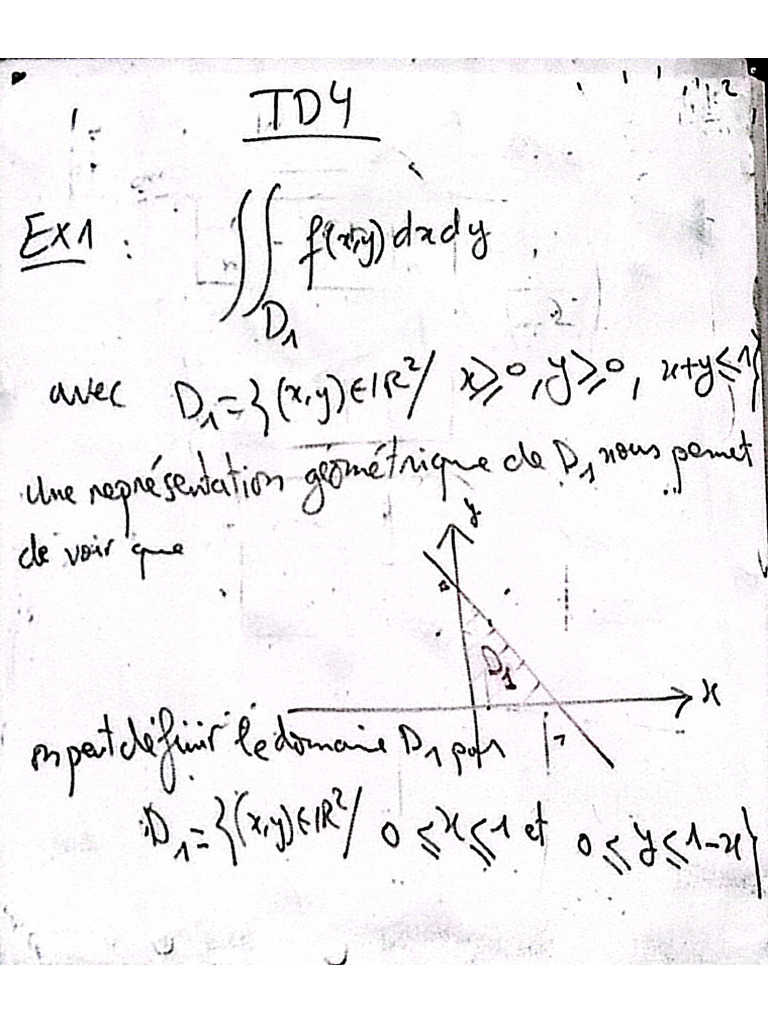 TD4
Ex1 : ∬_{D₁} f(x,y) dx dy
avec D₁ = {(x,y) ∈ ℝ² / x ≥ 0, y ≥ 0, x+y ≤ 1}
Une représentation géométrique de D₁ nous permet
de voir que
y
D₁
x
on peut définir le domaine D₁ par
D₁ = {(x,y) ∈ ℝ² / 0 ≤ x ≤ 1 et 0 ≤ y ≤ 1-x}